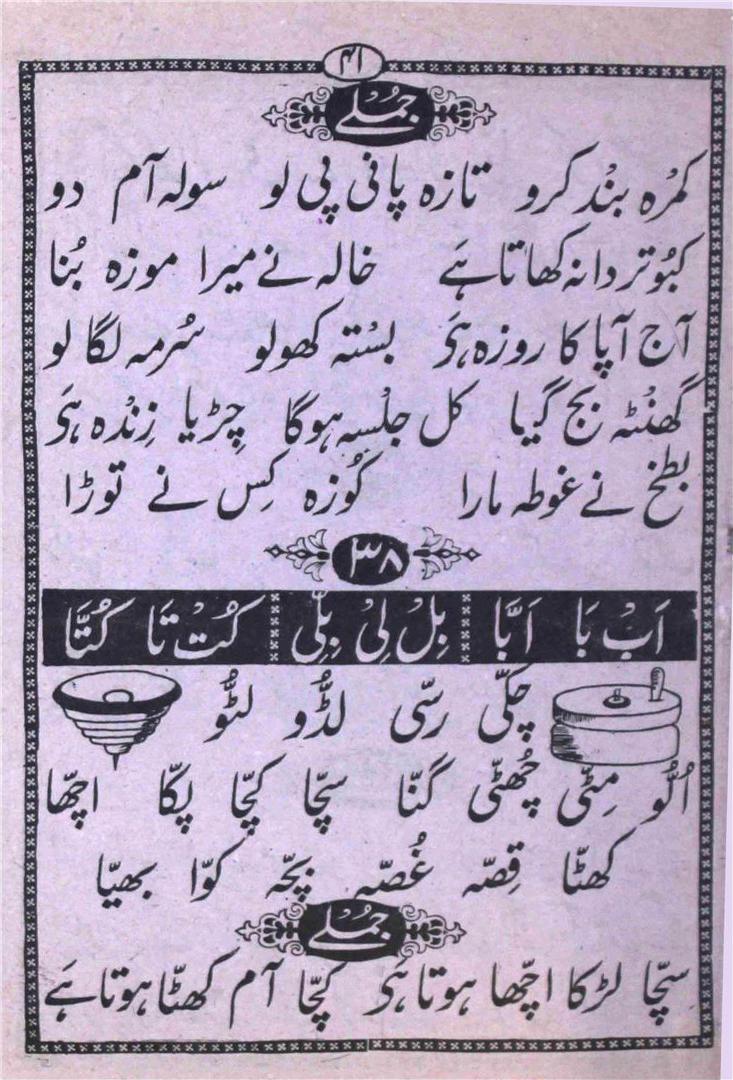 ۴۱
جُملے
کمرہ بنْد کرو تازہ پانی پی لو سولہ آم دو
کبُوتر دانہ کھاتا ہَے خالہ نے میرا موزہ بُنا
آج آپا کا روزہ ہَی بسْتہ کھولو سُرمہ لگا لو
گھنْٹہ بج گیا کل جلْسہ ہوگا چِڑیا زِنْدہ ہَی
بطخ نے غوطہ مارا کُوزہ کِس نے توڑا
۳۸
اَبْ بَا اَبَّا بِلْ لِیْ بِلِّی کُتْ تَا کُتَّا
چکّی رسّی لڈُّو لٹُّو
اُلُّو مِٹّی چُھٹّی گنّا سچّا کچّا پکّا اچّھا
کھٹّا قِصّہ غُصّہ بچّہ کوّا بھیّا
جُملے
سچّا لڑکا اچّھا ہوتا ہَی کچّا آم کھٹّا ہوتا ہَے